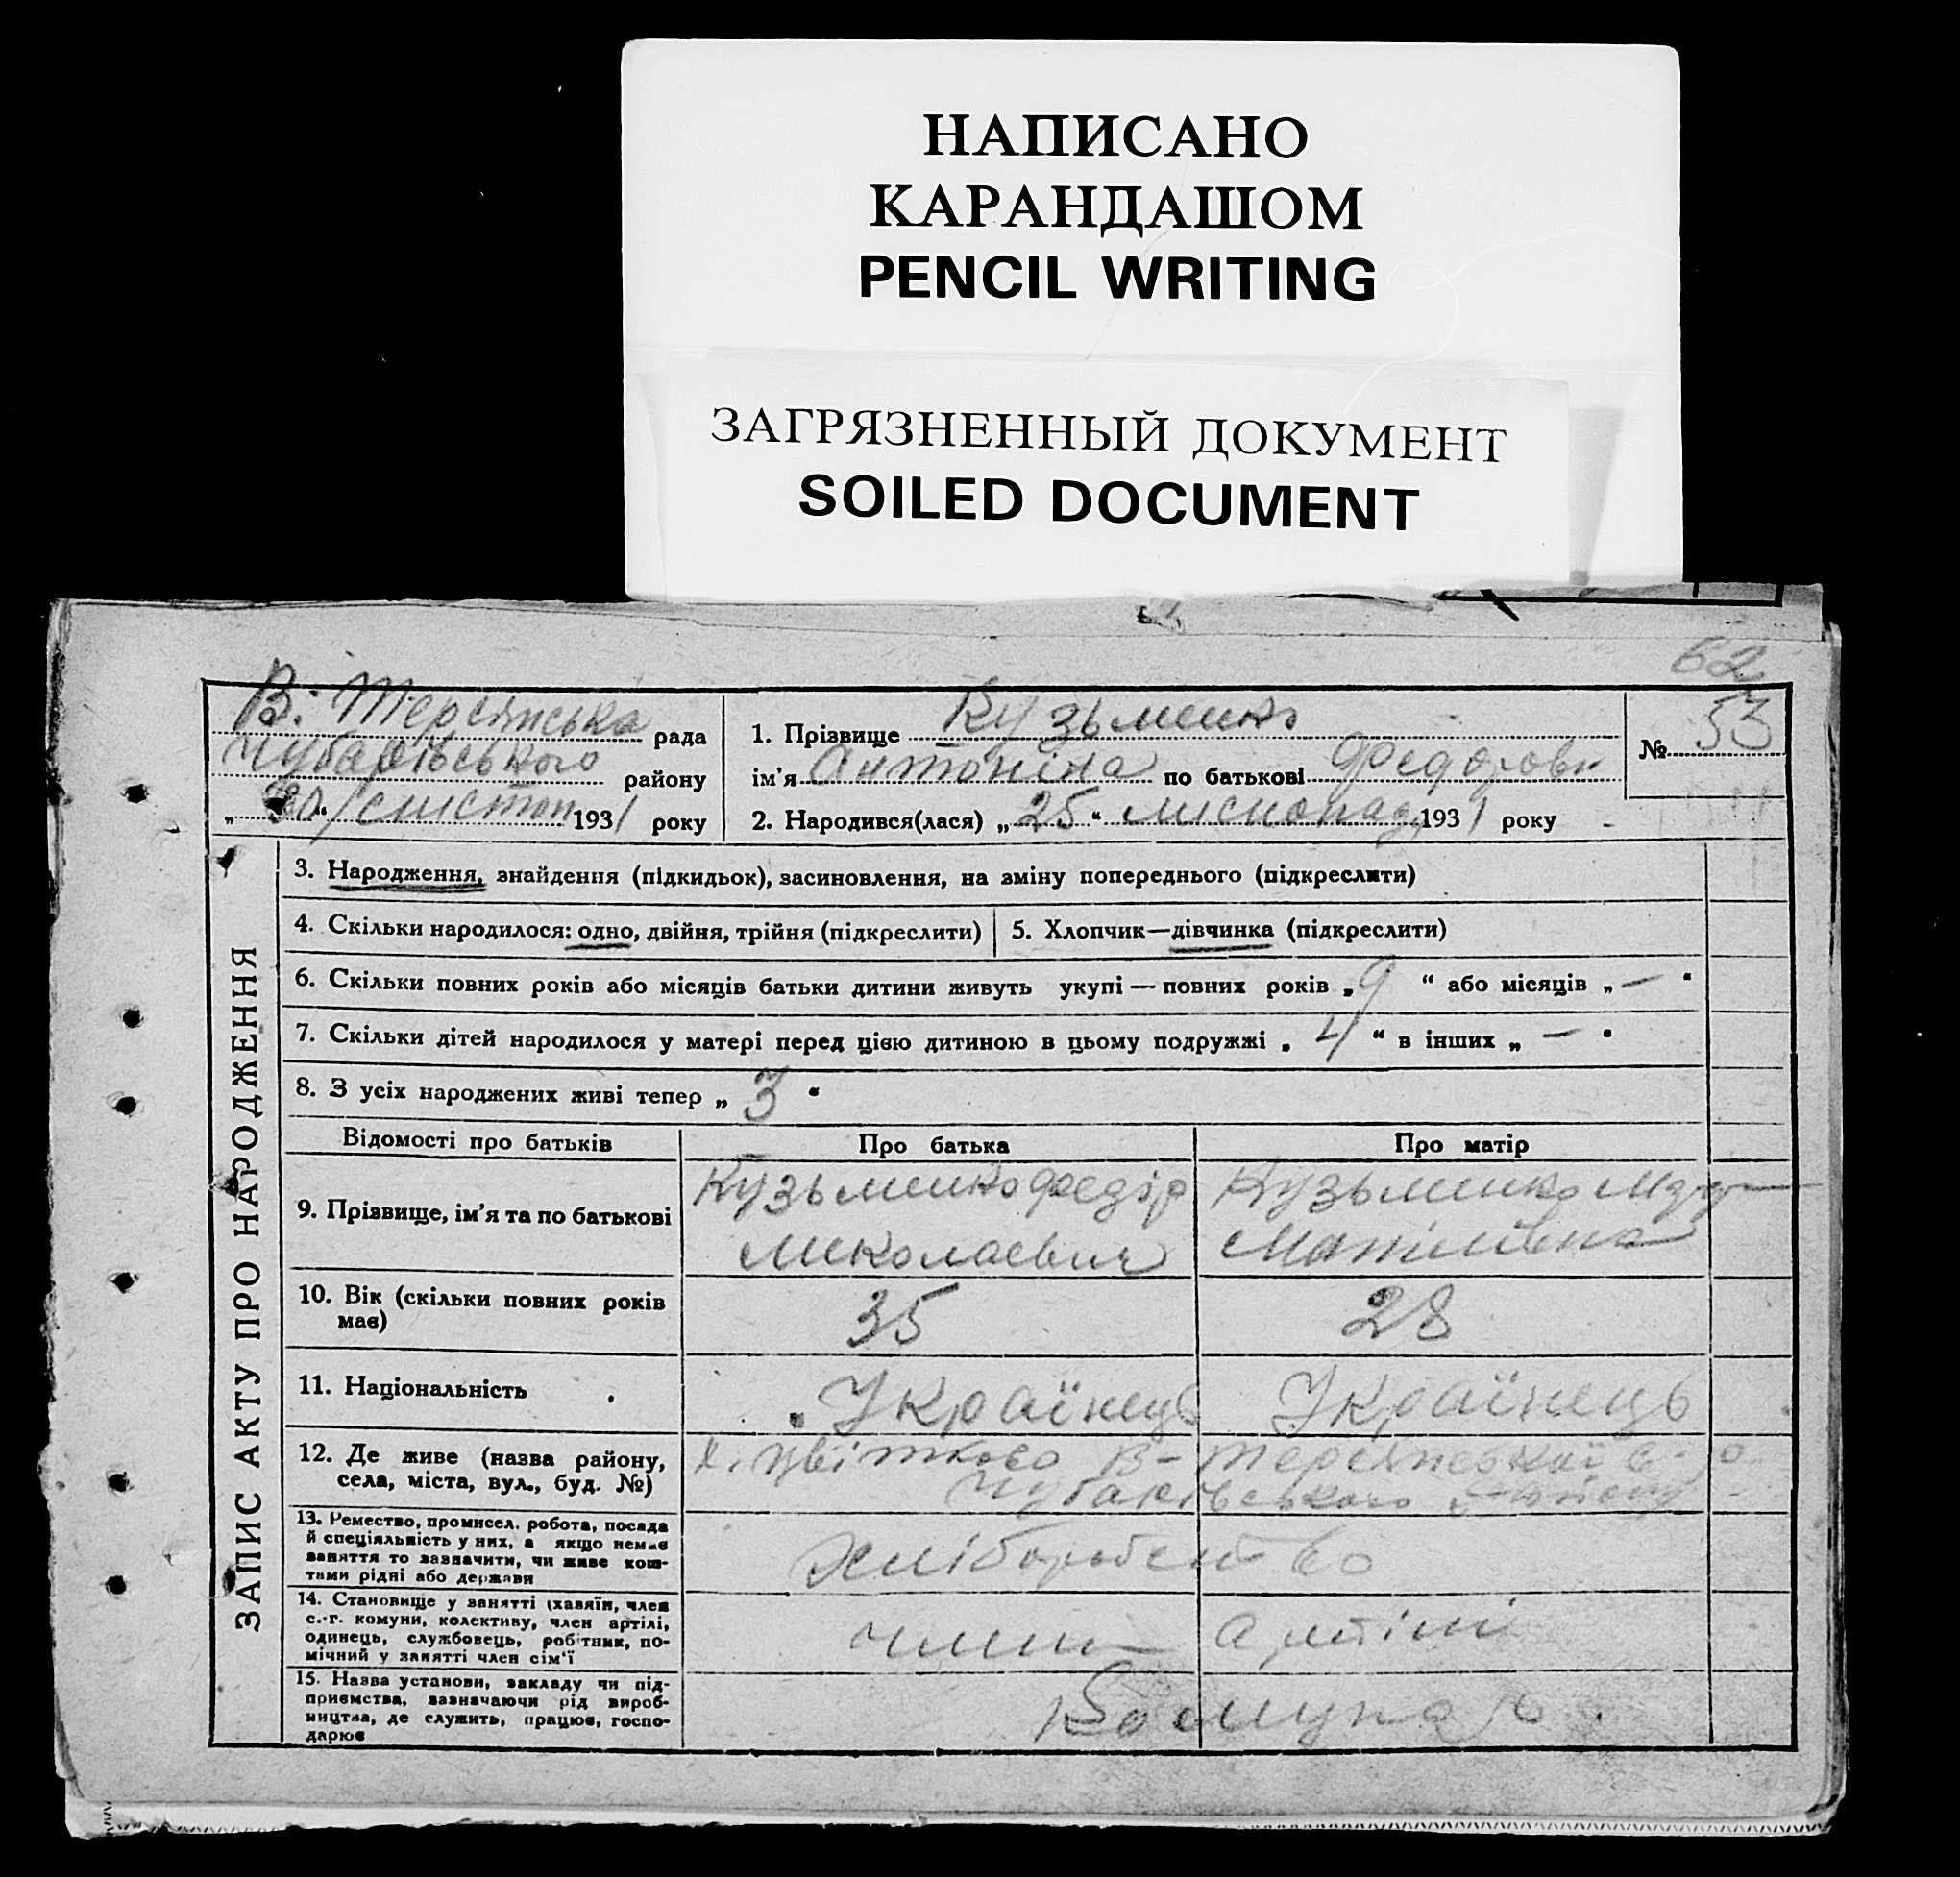 НАПИСАНО
КАРАНДАШОМ
PENCIL WRITING
ЗАГРЯЗНЕННЫЙ ДОКУМЕНТ
SOILED DOCUMENT
62
В. Терсянська рада
Чубарівського району
„ “ листоп 1931 року
1. Прізвище Кузьменко
ім’я Антоніна по батькові Федоровн
2. Народився(лася) „25“ листопад 1931 року
№ 53
ЗАПИС АКТУ ПРО НАРОДЖЕННЯ
3. Народження, знайдення (підкидьок), засиновлення, на зміну попереднього (підкреслити)
4. Скільки народилося: одно, двійня, трійня (підкреслити)
5. Хлопчик—дівчинка (підкреслити)
6. Скільки повних років або місяців батьки дитини живуть укупі — повних років „9“ або місяців „—“
7. Скільки дітей народилося у матері перед цією дитиною в цьому подружжі „4“ в інших „—“
8. З усіх народжених живі тепер „3“
Відомості про батьків Про батька Про матір
9. Прізвище, ім’я та по батькові
Кузьменко Федір
Миколаевич
Кузьменко
10. Вік (скільки повних років
має)
35
28
11. Національність
Українець
Українець
12. Де живе (назва району,
села, міста, вул., буд. №)
х. Цвітково В-Терсянської
Чубарівського району
13. Ремество, промисел, робота, посада
й спеціяльність у них, а якщо немає
заняття то зазначити, чи живе кош-
тами рідні або держави
Хліборобство
14. Становище у занятті (хазяїн, член
с.-г. комуни, колективу, член артілі,
одинець, службовець, робітник, по-
мічний у занятті член сім’ї
член артілі
15. Назва установи, закладу чи під-
приємства, зазначаючи рід вироб-
ництва, де служить, працює, госпо-
дарює